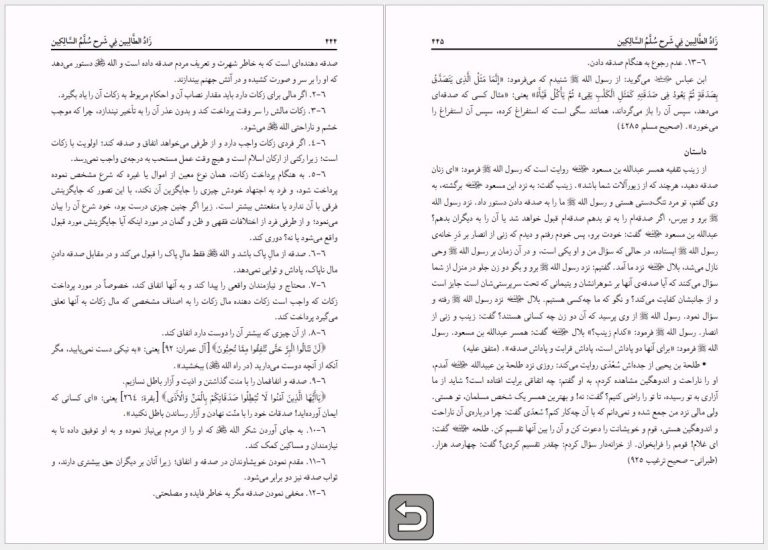 زَادُ الطَّالِبِين فِي شَرحِ سُلَّمُ السَّالِكِين
۴۴۵
۶-۱۳. عدم رجوع به هنگام صدقه دادن.
ابن عباس می‌گوید: از رسول الله ﷺ شنیدم که می‌فرمود: «إِنَّمَا مَثَلُ الَّذِي يَتَصَدَّقُ
بِصَدَقَةٍ ثُمَّ يَعُودُ فِي صَدَقَتِهِ كَمَثَلِ الْكَلْبِ يَقِيءُ ثُمَّ يَأْكُلُ قَيْأَهُ» یعنی: «مثال کسی که صدقه‌ای
می‌دهد، سپس آن را باز می‌گرداند، همانند سگی است که استفراغ کرده، سپس آن استفراغ را
می‌خورد». (صحیح مسلم ۴۲۸۵)
داستان
از زینب ثقفیه همسر عبدالله بن مسعود روایت است که رسول الله ﷺ فرمود: «ای زنان
صدقه دهید، هرچند که از زیورآلات شما باشد». زینب گفت: به نزد ابن مسعود برگشته، به
وی گفتم، تو مرد تنگ‌دستی هستی و رسول الله ﷺ ما را به صدقه دادن دستور داد. نزد رسول الله
ﷺ برو و بپرس، اگر صدقه‌ام را به تو بدهم صدقه‌ام قبول خواهد شد یا آن را به دیگران بدهم؟
عبدالله بن مسعود گفت: خودت برو، پس خودم رفتم و دیدم که زنی از انصار بر در خانه‌ی
رسول الله ﷺ ایستاده، در حالی که سؤال من و او یکی است، و در آن زمان بر رسول الله ﷺ وحی
نازل می‌شد، بلال نزد ما آمد. گفتیم: نزد رسول الله ﷺ برو و بگو دو زن جلو در منزل از شما
سؤال می‌کنند که آیا صدقه‌ی آنها بر شوهرانشان و یتیمانی که تحت سرپرستی‌شان است جایز است
و از جانبشان کفایت می‌کند؟ و نگو که ما چه‌کسی هستیم. بلال نزد رسول الله ﷺ رفته و
سؤال نمود. رسول الله ﷺ از وی پرسید که آن دو زن چه کسانی هستند؟ گفت: زینب و زنی از
انصار. رسول الله ﷺ فرمود: «کدام زینب؟» بلال گفت: همسر عبدالله بن مسعود. رسول
الله ﷺ فرمود: «برای آنها دو پاداش است، پاداش قرابت و پاداش صدقه». (متفق علیه)
* طلحة بن یحیی از جده‌اش سُعْدَی روایت می‌کند: روزی نزد طلحة بن عبیدالله آمدم،
او را ناراحت و اندوهگین مشاهده کردم، به او گفتم: چه اتفاقی برایت افتاده است؟ شاید از ما
آزاری به تو رسیده، تا تو را راضی کنیم؟ گفت: نه! و تو بهترین همسر یک شخص مسلمان، تو هستی،
ولی مالی نزد من جمع شده و نمی‌دانم که با آن چه‌کار کنم؟ سُعدی گفت: چرا درباره‌ی آن ناراحت
و اندوهگین هستی، قوم و خویشانت را دعوت کن و آن را بین آنها تقسیم کن. طلحه گفت:
ای غلام! قومم را فرابخوان. از خزانه‌دار سؤال کردم: چقدر تقسیم کردی؟ گفت: چهارصد هزار.
(طبرانی- صحیح ترغیب ۹۲۵)
۴۴۴
زَادُ الطَّالِبِين فِي شَرحِ سُلَّمُ السَّالِكِين
صدقه دهنده‌ای است که به خاطر شهرت و تعریف مردم صدقه داده است و الله دستور می‌دهد
که او را بر سر و صورت کشیده و در آتش جهنم بیندازند.
۶-۲. اگر مالی برای زکات دارد باید مقدار نصاب آن و احکام مربوط به زکات آن را یاد بگیرد.
۶-۳. زکات مالش را سر وقت پرداخت کند و بدون عذر آن را به تأخیر نیندازد، چرا که موجب
خشم و ناراحتی الله می‌شود.
۶-۴. اگر فردی زکات واجب دارد و از طرفی می‌خواهد اتفاق و صدقه کند؛ اولویت با زکات
است؛ زیرا رکنی از ارکان اسلام است و هیچ وقت عمل مستحب به درجه‌ی واجب نمی‌رسد.
۶-۵. به هنگام پرداخت زکات، همان نوع معین از اموال یا غیره که شرع مشخص نموده
پرداخت شود، و فرد به اجتهاد خودش چیزی را جایگزین آن نکند، با این تصور که جایگزینش
فرقی با آن ندارد یا منفعتش بیشتر است. زیرا اگر چنین چیزی درست بود، خود شرع آن را بیان
می‌نمود؛ و از طرفی فرد از اختلافات فقهی و ظن و گمان در مورد اینکه آیا جایگزینش مورد قبول
واقع می‌شود یا نه؟ دوری کند.
۶-۶. صدقه از مالِ پاک باشد و الله فقط مالِ پاک را قبول می‌کند و در مقابل صدقه دادنِ
مال ناپاک، پاداش و ثوابی نمی‌دهد.
۶-۷. محتاج و نیازمندان واقعی را پیدا کند و به آنها انفاق کند، خصوصاً در مورد پرداخت
زکات که واجب است زکات دهنده مال زکات را به اصناف مشخصی که مال زکات به آنها تعلق
می‌گیرد پرداخت کند.
۶-۸. از آن چیزی که بیشتر آن را دوست دارد انفاق کند.
﴿لَنْ تَنَالُوا الْبِرَّ حَتَّى تُنْفِقُوا مِمَّا تُحِبُّونَ﴾ [آل عمران: ٩٢] یعنی: «به نیکی دست نمی‌یابید، مگر
آنکه از آنچه دوست می‌دارید (در راه الله) ببخشید».
۶-۹. صدقه و انفاقمان را با منت گذاشتن و اذیت و آزار باطل نسازیم.
﴿يَاأَيُّهَا الَّذِينَ آمَنُوا لَا تُبْطِلُوا صَدَقَاتِكُمْ بِالْمَنِّ وَالْأَذَى﴾ [بقرة: ٢٦٤] یعنی: «ای کسانی که
ایمان آورده‌اید! صدقات خود را با منّت نهادن و آزار رساندن باطل نکنید».
۶-۱۰. به جای آوردن شکر الله که او را از مردم بی‌نیاز نموده و به او توفیق داده تا به
نیازمندان و مساکین کمک کند.
۶-۱۱. مقدم نمودن خویشاوندان در صدقه و انفاق؛ زیرا آنان بر دیگران حق بیشتری دارند، و
ثواب صدقه نیز دو برابر می‌شود.
۶-۱۲. مخفی نمودن صدقه مگر به خاطر فایده و مصلحتی.